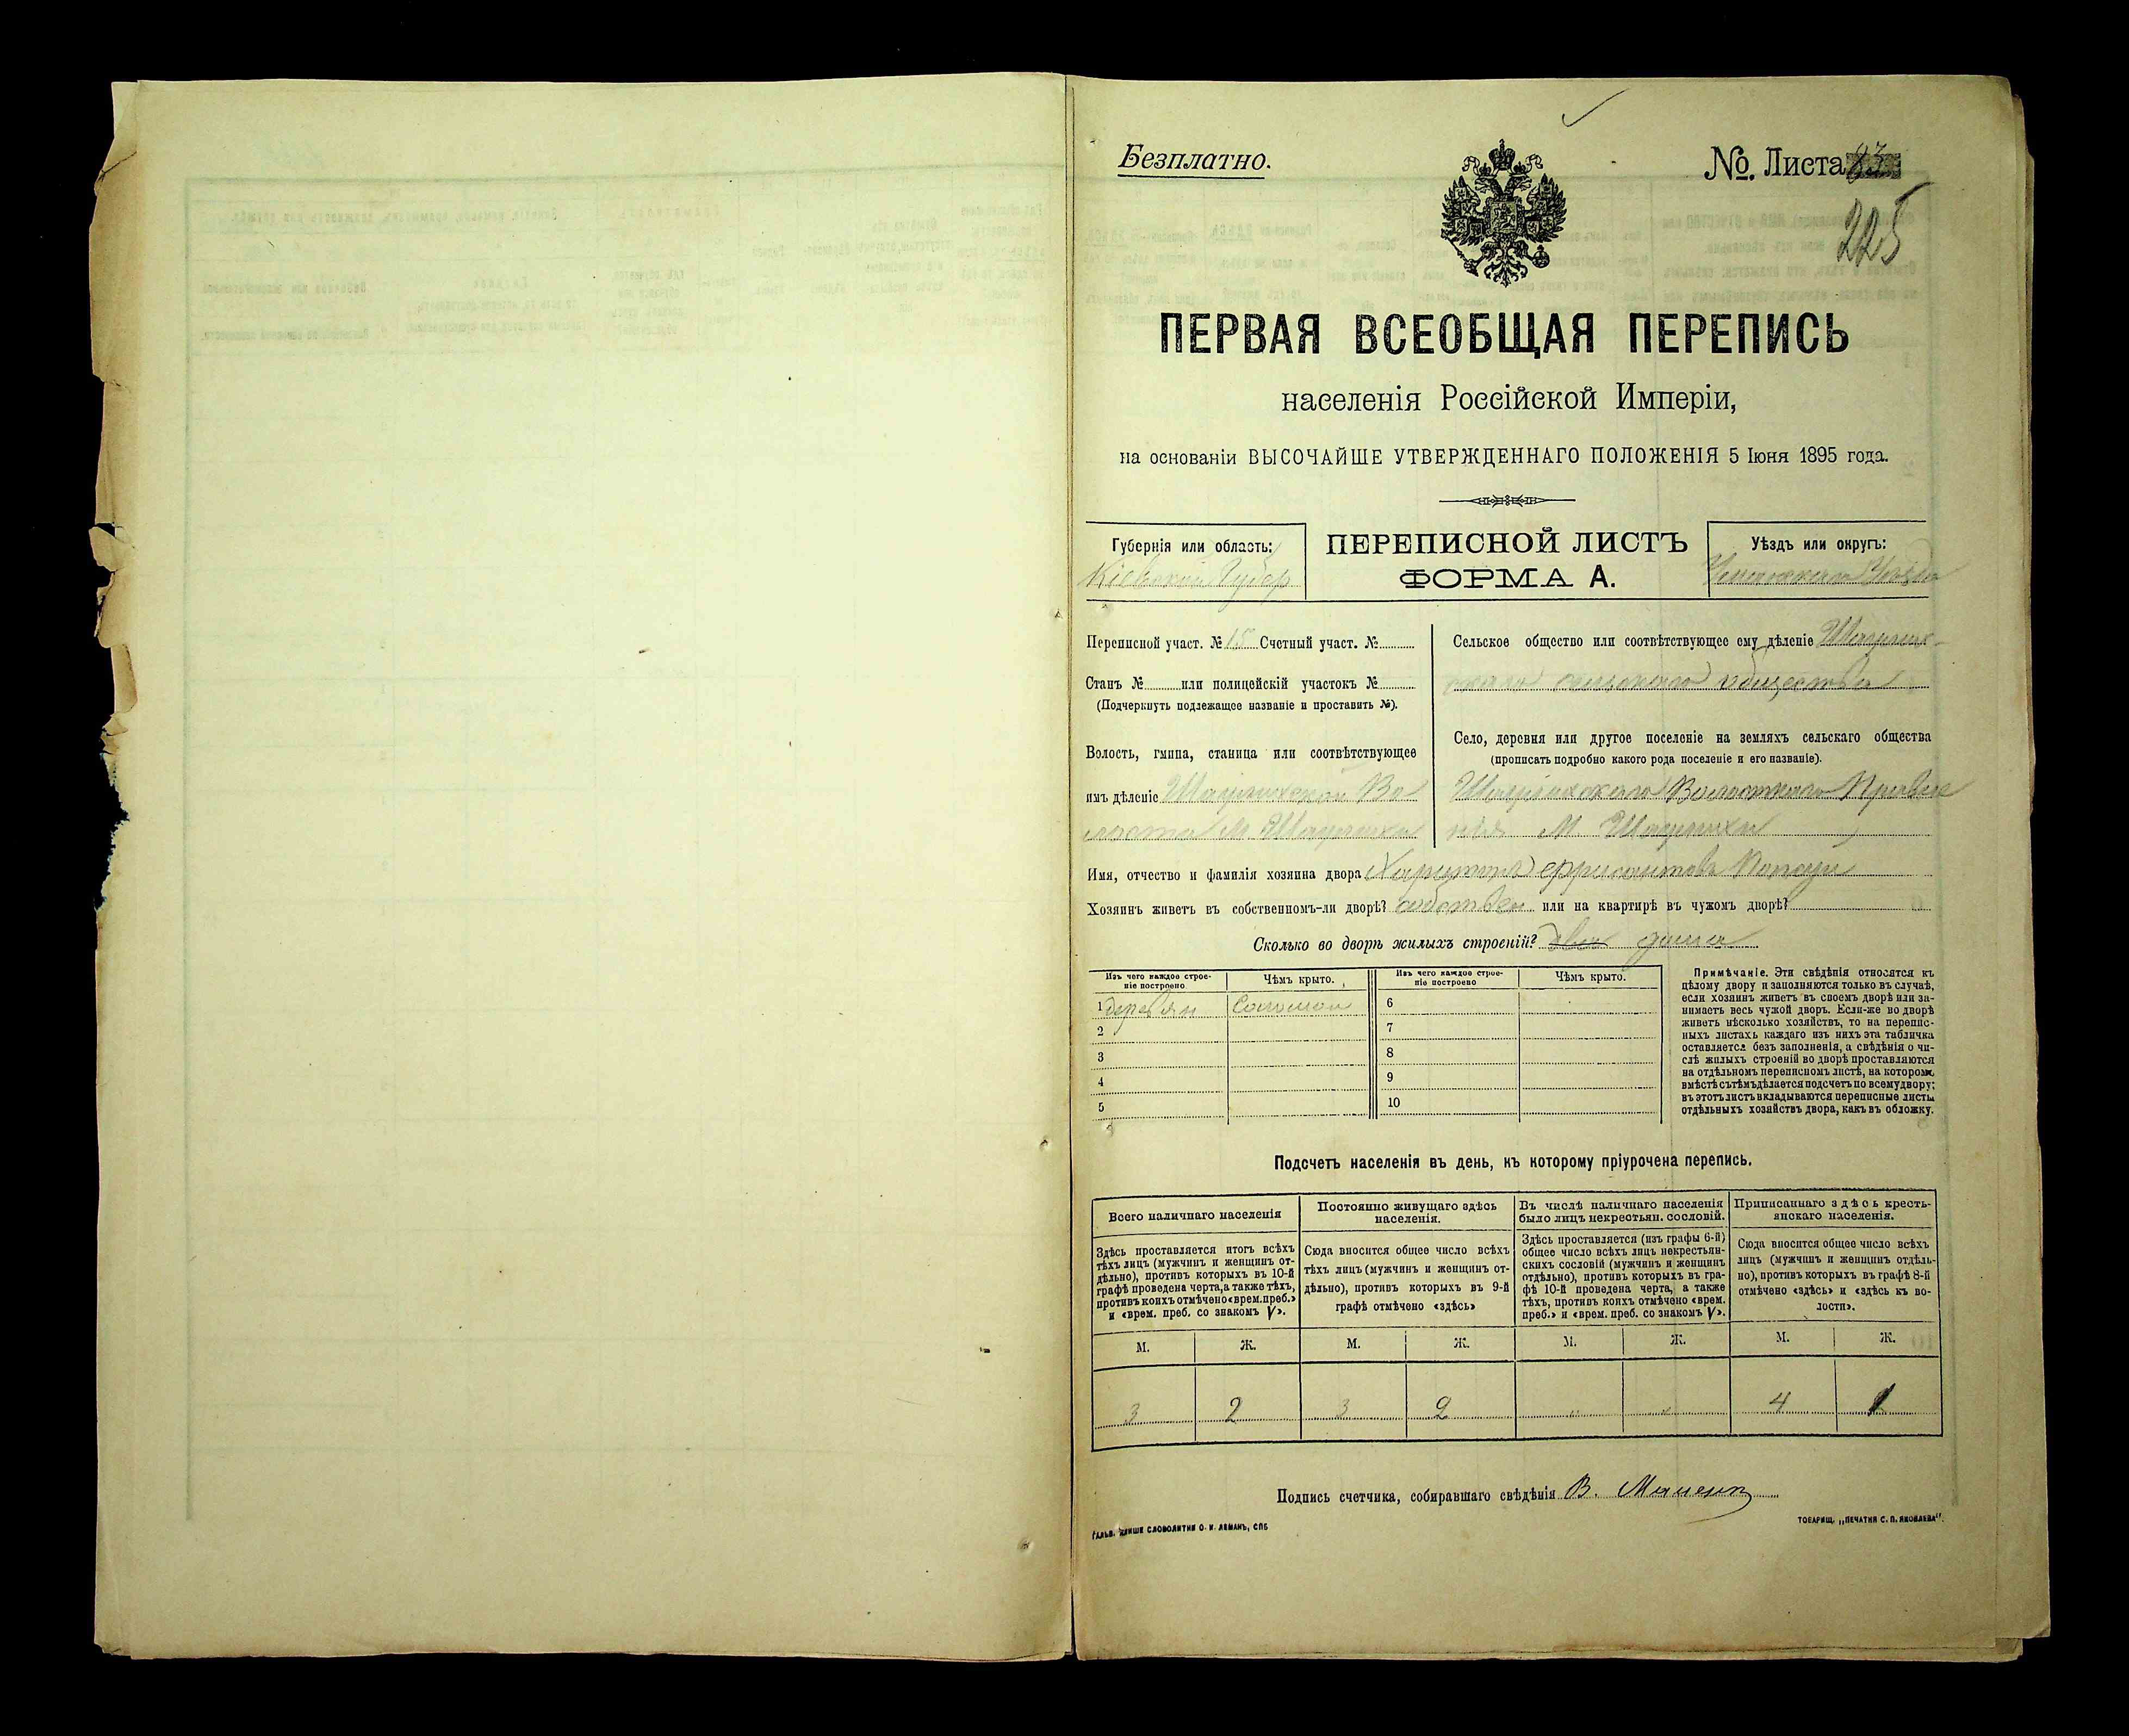 Безплатно.
№. Листа
225
ПЕРВАЯ ВСЕОБЩАЯ ПЕРЕПИСЬ
населенія Россійской Имперіи,
на основаніи ВЫСОЧАЙШЕ УТВЕРЖДЕННАГО ПОЛОЖЕНІЯ 5 Іюня 1895 года.
Губернія или область:
Кіевской Губер
ПЕРЕПИСНОЙ ЛИСТЪ
ФОРМА А.
Уѣздъ или округъ:
Уѣзда
Переписной участ. № 15 Счетный участ. №
Станъ № или полицейскій участокъ №
(Подчеркнуть подлежащее названіе и проставить №).
Волость, гмина, станица или соотвѣтствующее
имъ дѣленіе
Сельское общество или соотвѣтствующее ему дѣленіе
сельскаго общества
Село, деревня или другое поселеніе на земляхъ сельскаго общества
(прописать подробно какого рода поселеніе и его названіе).
Волостного Правле
нія М.
Имя, отчество и фамилія хозяина двора Харитонъ
Хозяинъ живетъ въ собственномъ-ли дворѣ? собствен или на квартирѣ въ чужомъ дворѣ?
Сколько во дворѣ жилыхъ строеній?
Изъ чего каждое строе-
ніе построено
Чѣмъ крыто.
1 деревян Соломой
2
3
4
5
Изъ чего каждое строе-
ніе построено
Чѣмъ крыто.
6
7
8
9
10
Примѣчаніе. Эти свѣдѣнія относятся къ
цѣлому двору и заполняются только въ случаѣ,
если хозяинъ живетъ въ своемъ дворѣ или за-
нимаетъ весь чужой дворъ. Если-же во дворѣ
живетъ нѣсколько хозяйствъ, то на перепис-
ныхъ листахъ каждаго изъ нихъ эта табличка
оставляется безъ заполненія, а свѣдѣнія о чи-
слѣ жилыхъ строеній во дворѣ проставляются
на отдѣльномъ переписномъ листѣ, на которомъ
вмѣстѣ съ тѣмъ дѣлается подсчетъ по всему двору;
въ этотъ листъ вкладываются переписные листы
отдѣльныхъ хозяйствъ двора, какъ въ обложку.
Подсчетъ населенія въ день, къ которому пріурочена перепись.
Всего наличнаго населенія
Здѣсь проставляется итогъ всѣхъ
тѣхъ лицъ (мужчинъ и женщинъ от-
дѣльно), противъ которыхъ въ 10-й
графѣ проведена черта, а также тѣхъ,
противъ коихъ отмѣчено «врем. преб.»
и «врем. преб. со знакомъ V».
Постоянно живущаго здѣсь
населенія.
Сюда вносится общее число всѣхъ
тѣхъ лицъ (мужчинъ и женщинъ от-
дѣльно), противъ которыхъ въ 9-й
графѣ отмѣчено «здѣсь»
Въ числѣ наличнаго населенія
было лицъ некрестьян. сословій.
Здѣсь проставляется (изъ графы 6-й)
общее число всѣхъ лицъ некрестьян-
скихъ сословій (мужчинъ и женщинъ
отдѣльно), противъ которыхъ въ гра-
фѣ 10-й проведена черта, а также
тѣхъ, противъ коихъ отмѣчено «врем.
преб.» и «врем. преб. со знакомъ V».
Приписаннаго здѣсь кресть-
янскаго населенія.
Сюда вносится общее число всѣхъ
лицъ (мужчинъ и женщинъ отдѣль-
но), противъ которыхъ въ графѣ 8-й
отмѣчено «здѣсь» и «здѣсь къ во-
лости».
М. Ж. М. Ж. М. Ж. М. Ж.
3 2 3 2 " " 4 1
Подпись счетчика, собиравшаго свѣдѣнія В.
ГАЛЬВ. КЛИШЕ СЛОВОЛИТНИ О. И. ЛЕМАНЪ, СПБ
ТОВАРИЩ. „ПЕЧАТНЯ С. П. ЯКОВЛЕВА".